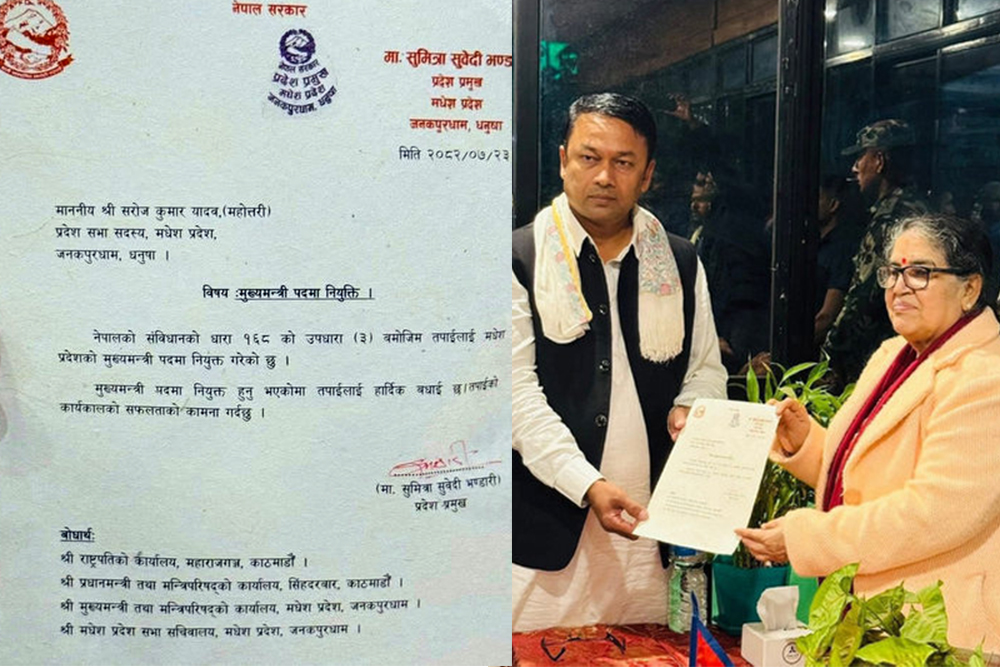 नेपाल सरकार
नेपाल सरकार
प्रदेश प्रमुख
मधेश प्रदेश
जनकपुरधाम, धनुषा
मा. सुमित्रा सुवेदी भण्ड
प्रदेश प्रमुख
मधेश प्रदेश
जनकपुरधाम, धनुषा
मिति २०८२/०७/२३
माननीय श्री सरोज कुमार यादव,(महोत्तरी)
प्रदेश सभा सदस्य, मधेश प्रदेश,
जनकपुरधाम, धनुषा ।
विषय :मुख्यमन्त्री पदमा नियुक्ति ।
नेपालको संविधानको धारा १६८ को उपधारा (३) बमोजिम तपाईलाई मधेश
प्रदेशको मुख्यमन्त्री पदमा नियुक्त गरेको छु ।
मुख्यमन्त्री पदमा नियुक्त हुनु भएकोमा तपाईलाई हार्दिक बधाई छ।तपाईको
कार्यकालको सफलताको कामना गर्दछु ।
(मा. सुमित्रा सुवेदी भण्डारी)
प्रदेश प्रमुख
बोधार्थ:
श्री राष्ट्रपतिको कार्यालय, महाराजगञ्ज, काठमाडौं ।
श्री प्रधानमन्त्री तथा मन्त्रिपरिषद्को कार्यालय, सिंहदरबार, काठमाडौं ।
श्री मुख्यमन्त्री तथा मन्त्रिपरिषद्को कार्यालय, मधेश प्रदेश, जनकपुरधाम ।
श्री मधेश प्रदेश सभा सचिवालय, मधेश प्रदेश, जनकपुरधाम ।